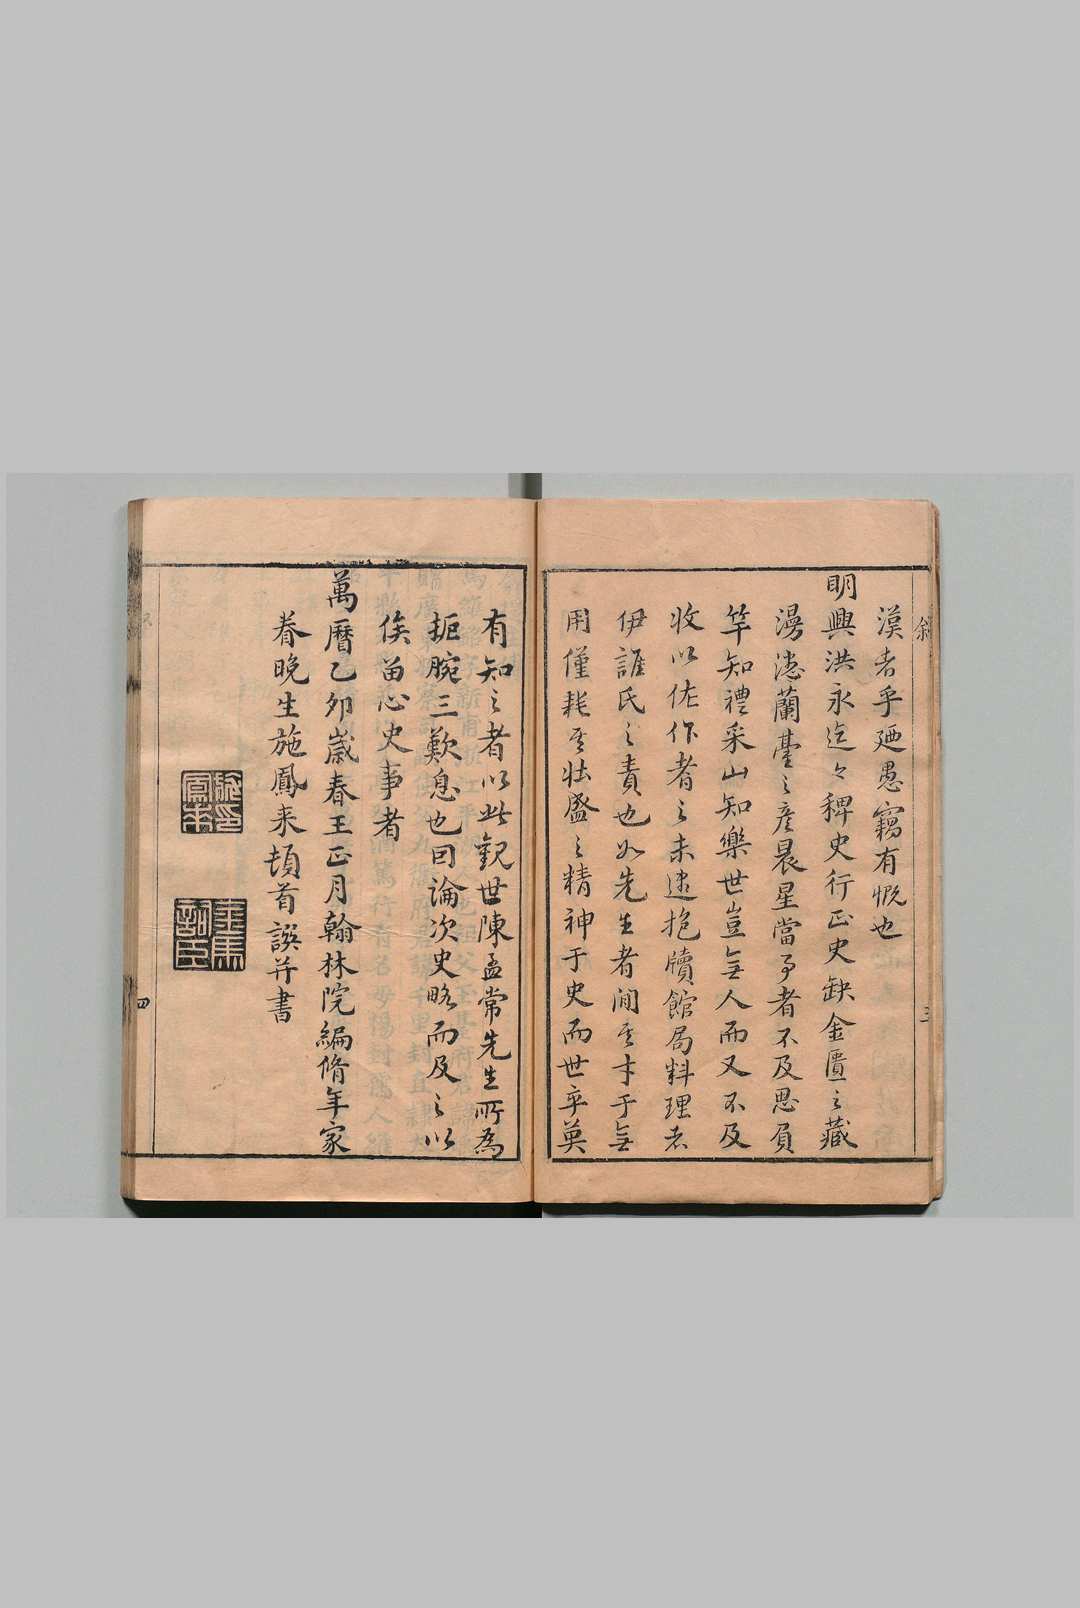 漢者乎廼愚竊有慨也
明興洪永迄々稗史行正史缺金匱之藏
漫漶蘭臺之彥晨星當事者不及思負
竿知禮采山知樂世豈無人而又不及
收以佐作者之未逮抱牘館局料理者
伊誰氏之責也如先生者間其才于無
用僅耗其壯盛之精神于史而世卒莫
有知之者以此觀世陳孟常先生所為
扼腕三歎息也因論次史略而及之以
俟留心史事者
萬曆乙卯歲春王正月翰林院編脩年家
眷晚生施鳳来頓首譔并書
施鳳来印
金馬詞臣
叙
三
四